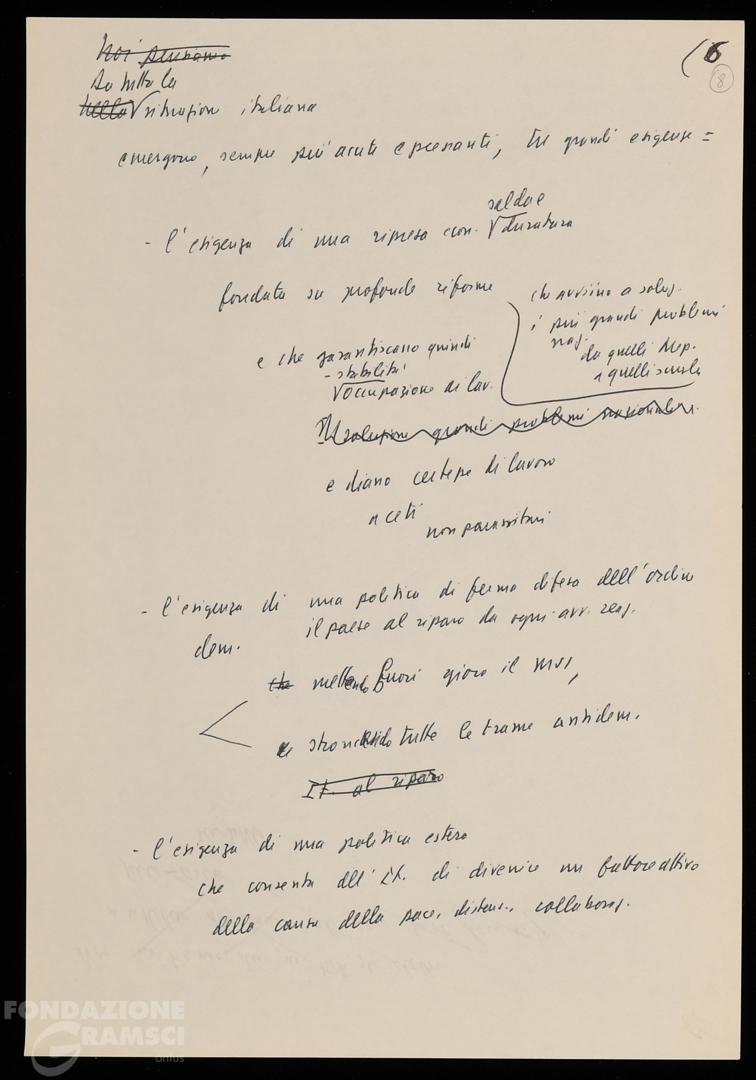 (6
8
Noi pensiamo
Da tutta la
nella situazione italiana
emergono, sempre più acute e pressanti, tre grandi esigenze =
salda e
- l'esigenza di una ripresa econ. duratura
fondata su profonde riforme
che avviino a soluz.
i più grandi problemi
naz.
da quelli Mep.
a quelli scuola
e che garantiscano quindi
- stabilità
occupazione di lav.
soluzione grandi problemi nazionali
e diano certezze di lavoro
a ceti
non parassitari
- l'esigenza di una politica di ferma difesa dell'ordine
dem. il paese al riparo da ogni avv. reaz.
che mettendo fuori gioco il MSI,
e stroncando tutte le trame antidem.
It. al riparo
- l'esigenza di una politica estera
che consenta all'It. di divenire un fattore attivo
della causa della pace, distens., collaboraz.
FONDAZIONE
GRAMSCI
onlus